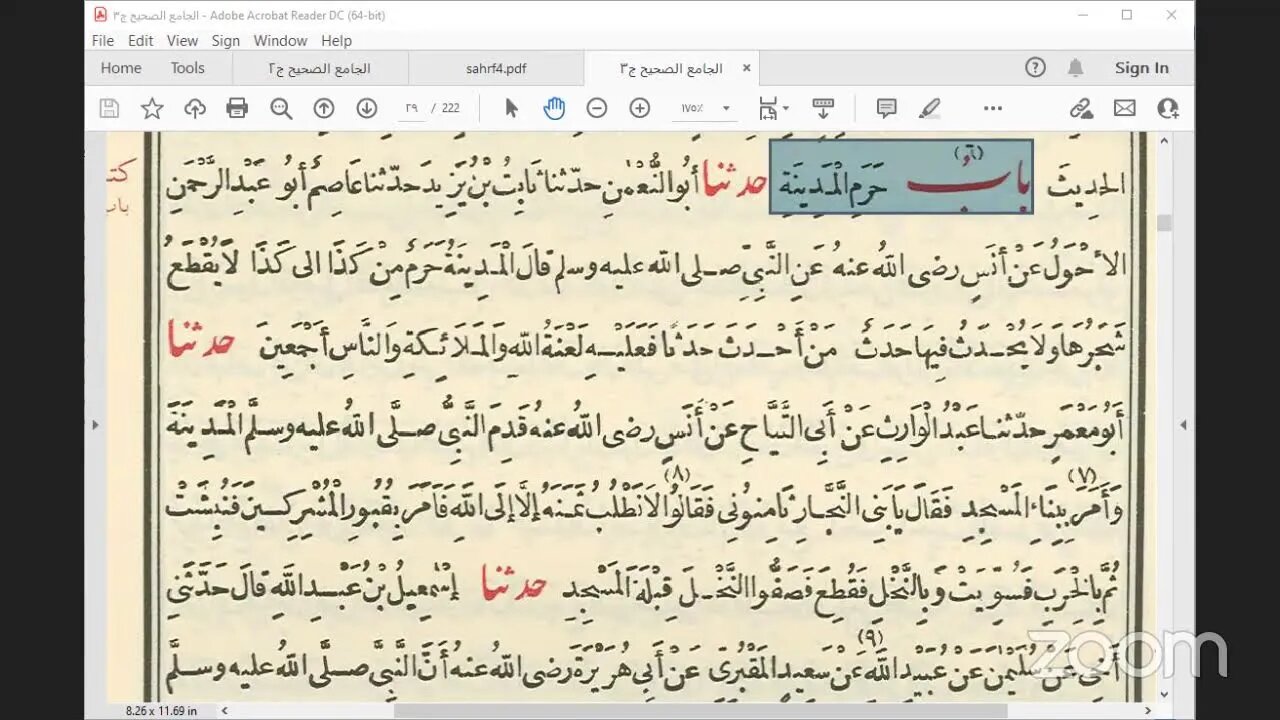 الجامع الصحيح ج٣ - Adobe Acrobat Reader DC (64-bit)
File Edit View Sign Window Help
Home Tools الجامع الصحيح ج٢ sahrf4.pdf الجامع الصحيح ج٣ × ? Sign In
٢٩ / 222 ١٧٥٪
الحديثَ بابُ (٦) حَرَمِ الْمَدِينَةِ حدثنا أَبُو النُّعْمٰنِ حدّثنا ثَابِتُ بْنُ يَزِيدَ حدّثنا عَاصِمٌ أَبُو عَبْدِ الرَّحْمٰنِ
الأَحْوَلُ عَنْ أَنَسٍ رضى اللهُ عنهُ عَنِ النَّبِيِّ صلى الله عليه وسلم قالَ الْمَدِينَةُ حَرَمٌ مِنْ كَذَا الى كَذَا لَا يُقْطَعُ
شَجَرُهَا وَلَا يُحْدَثُ فِيهَا حَدَثٌ مَنْ أَحْدَثَ حَدَثًا فَعَلَيْهِ لَعْنَةُ اللهِ وَالْمَلَائِكَةِ وَالنَّاسِ أَجْمَعِينَ حدثنا
أَبُو مَعْمَرٍ حدّثنا عَبْدُ الْوَارِثِ عَنْ أَبِى التَّيَّاحِ عَنْ أَنَسٍ رضى اللهُ عنهُ قَدِمَ النَّبِىُّ صلَّى اللهُ عليه وسلَّم الْمَدِينَةَ
(٧) (٨)
وَأَمَرَ بِبِنَاءِ الْمَسْجِدِ فَقَالَ يَا بَنِى النَّجَّارِ ثَامِنُونِى فَقَالُوا لَا نَطْلُبُ ثَمَنَهُ إِلَّا إِلَى اللهِ فَأَمَرَ بِقُبُورِ الْمُشْرِكِينَ فَنُبِشَتْ
ثُمَّ بِالْخِرَبِ فَسُوِّيَتْ وَبِالنَّخْلِ فَقُطِعَ فَصَفُّوا النَّخْلَ قِبْلَةَ الْمَسْجِدِ حدثنا إِسْمٰعِيلُ بْنُ عَبْدِ اللهِ قَالَ حَدَّثَنِى
(٩)
أَخِى عَنْ سُلَيْمٰنَ عَنْ عُبَيْدِ اللهِ عَنْ سَعِيدٍ الْمَقْبُرِىِّ عَنْ أَبِى هُرَيْرَةَ رضى اللهُ عنهُ أَنَّ النَّبِىَّ صلَّى اللهُ عليه وسلَّم
zoom
8.26 x 11.69 in